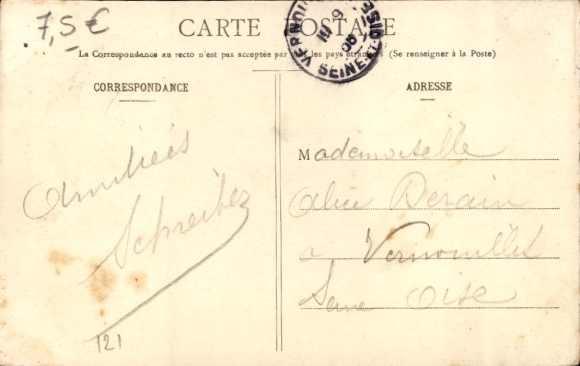 7,5 €
CARTE POSTALE
La Correspondance au recto n'est pas acceptée par les pays étrangers (Se renseigner à la Poste)
VERNOUI SEINE-ET-OISE
9
06
CORRESPONDANCE
ADRESSE
Amitiés
Schreiber
Mademoiselle
Alice Derain
a Vernouillet
Seine Oise
121